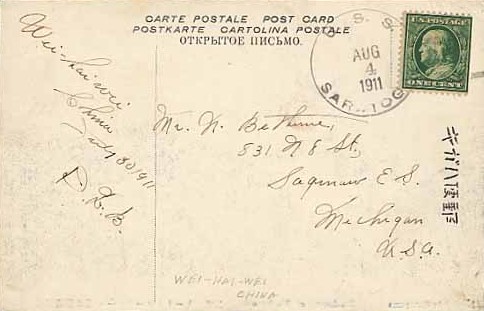 CARTE POSTALE POST CARD
POSTKARTE CARTOLINA POSTALE
ОТКРЫТОЕ ПИСЬМО.
U. S. S.
AUG
4
1911
SARATOG
U.S. POSTAGE
ONE CENT
Wei-hai-wei
China
July 30 1911
Mr. N. Bethune,
531 N 8 St,
Saginaw E S.
Michigan
U.S.A.
WEI-HAI-WEI
CHINA